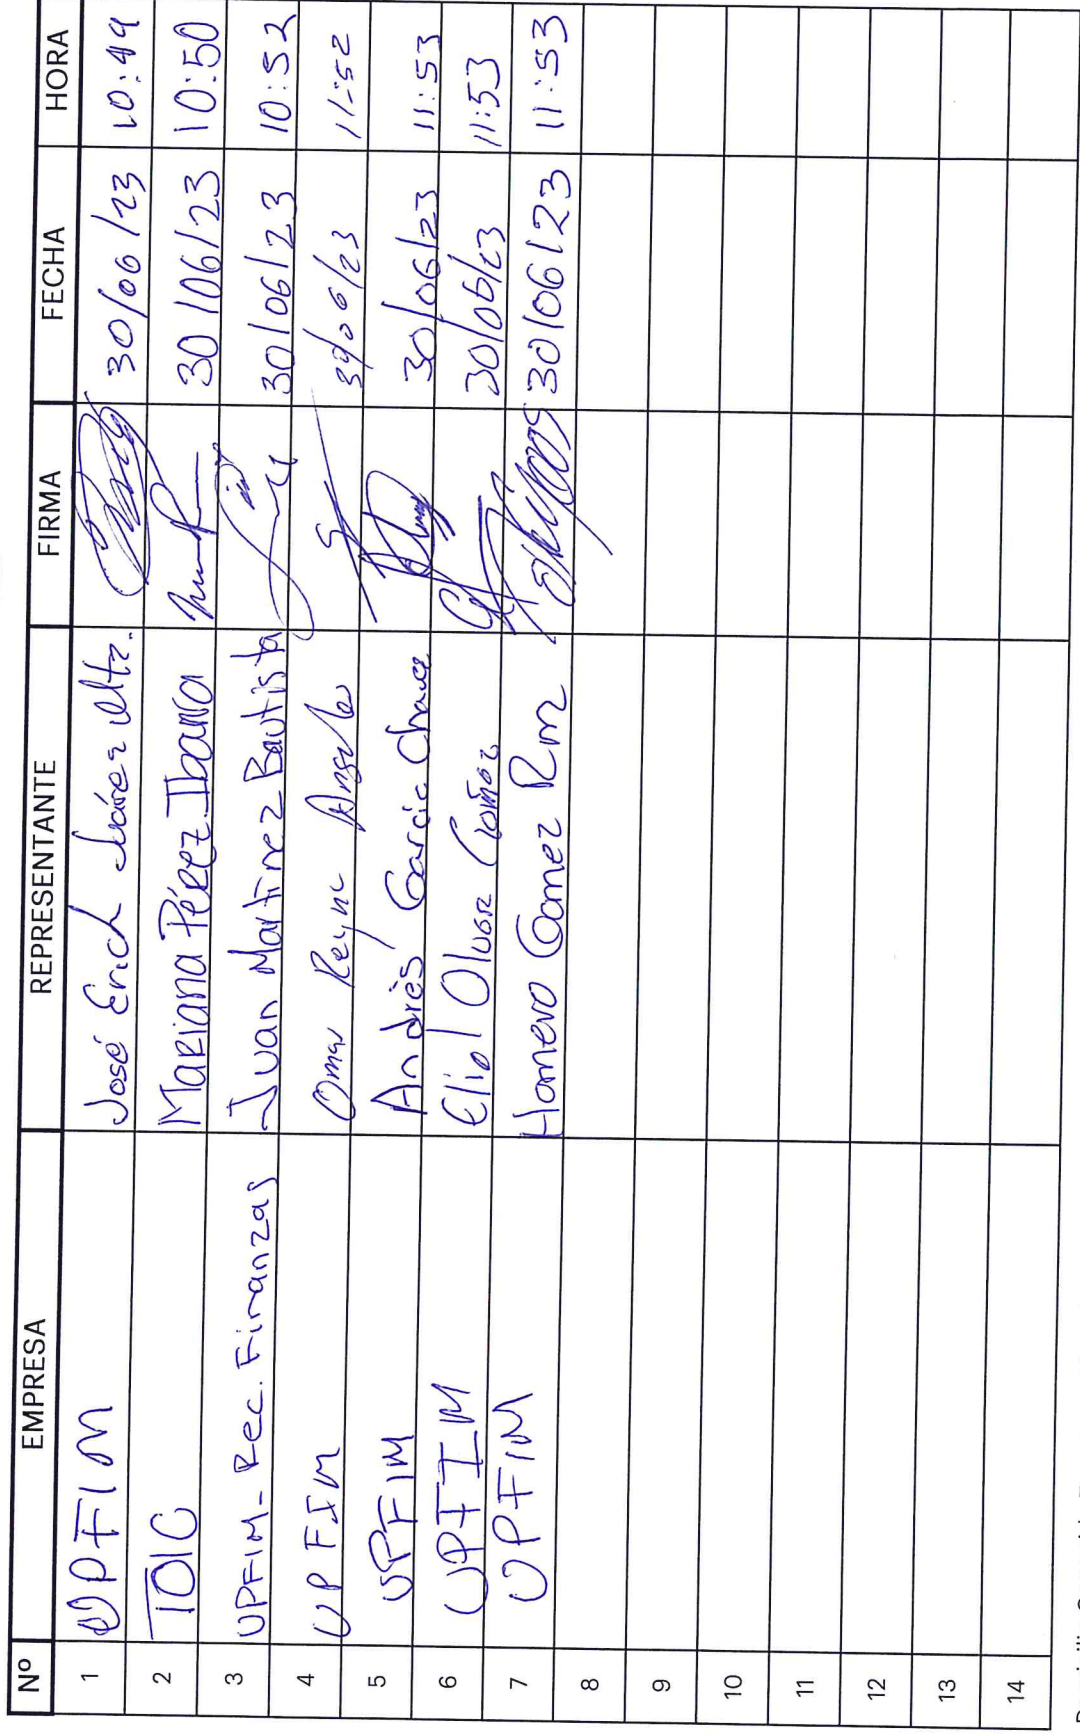 Nº EMPRESA REPRESENTANTE FIRMA FECHA HORA
1 UPFIM José Erich Juárez Mtz. 30/06/23 10:49
2 TOIC Mariana Pérez Ibarra 30/06/23 10:50
3 UPFIM-Rec. Finanzas Juan Martinez Bautista 30/06/23 10:52
4 UPFIM Omar Reyna Angeles 30/06/23 11:52
5 UPFIM Andrés Garcia Chavez 30/06/23 11:53
6 UPFIM 30/06/23 11:53
7 UPFIM Homero Gomez Rmz 30/06/23 11:53
8
9
10
11
12
13
14